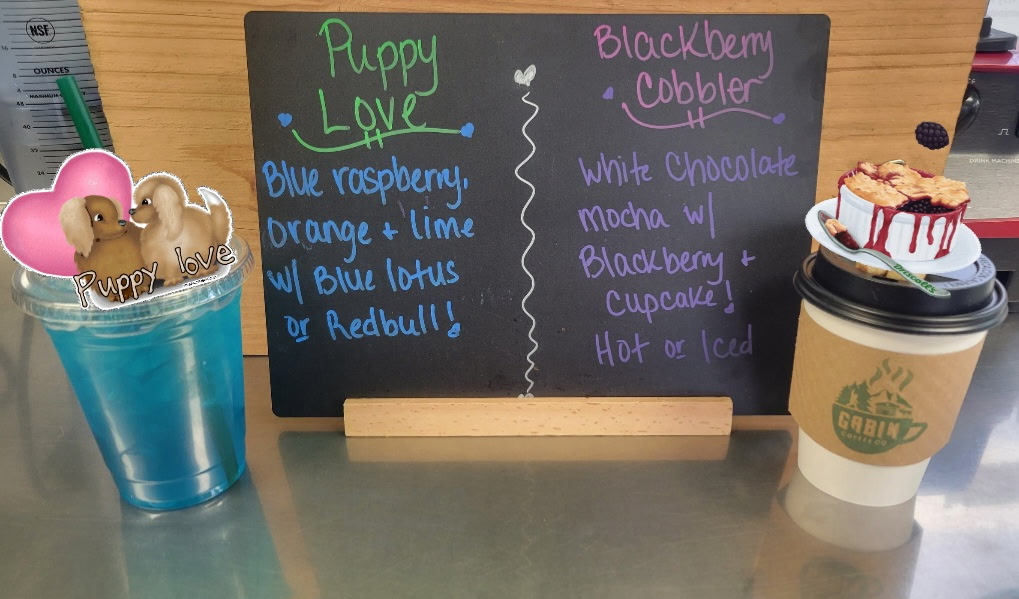 NSF
OUNCES
Puppy
Love
Blue raspberry,
orange + lime
w/ Blue lotus
or Redbull!
Blackberry
Cobbler
White Chocolate
mocha w/
Blackberry +
Cupcake!
Hot or Iced
Puppy love
CABIN
COFFEE CO
DRINK MACHINE